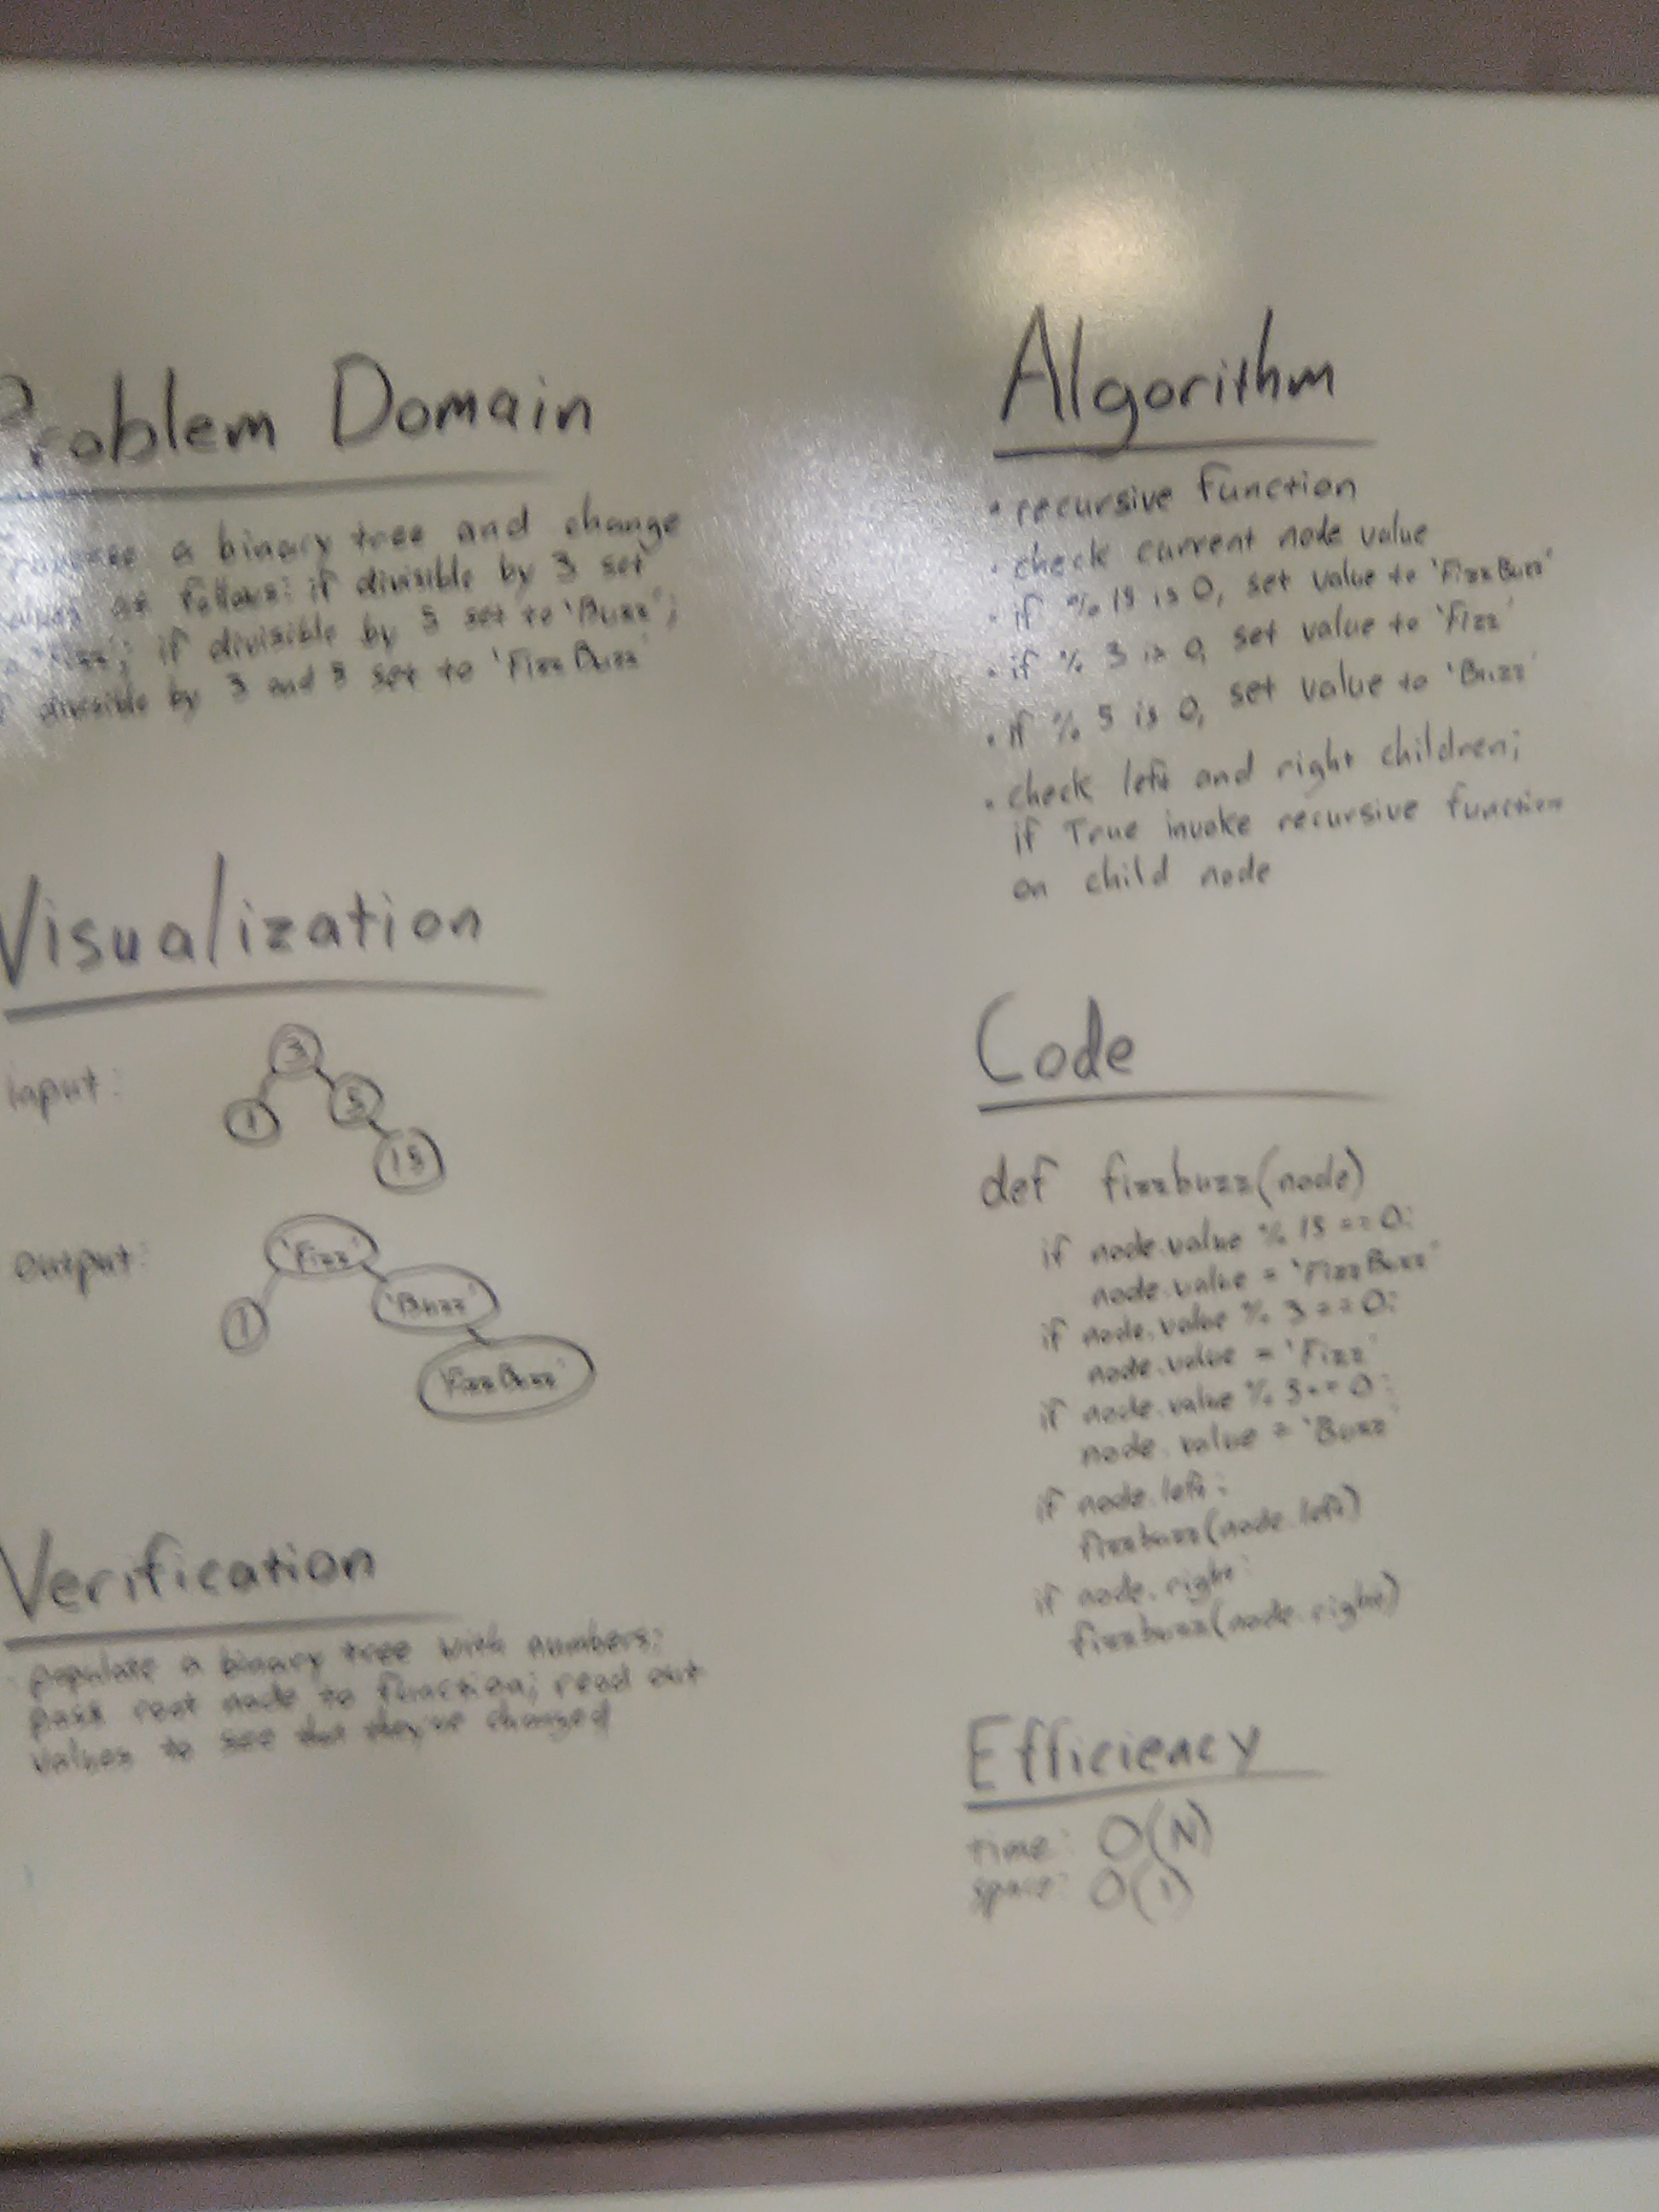 Problem Domain
a binary tree and change
values as follows: if divisible by 3 set
'Fizz'; if divisible by 5 set to 'Buzz';
divisible by 3 and 5 set to 'FizzBuzz'
Visualization
input:
3
1
5
15
output:
'Fizz'
1
'Buzz'
'FizzBuzz'
Verification
populate a binary tree with numbers;
pass root node to function; read out
values to see that they've changed
Algorithm
• recursive function
• check current node value
• if % 15 is 0, set value to 'FizzBuzz'
• if % 3 is 0, set value to 'Fizz'
• if % 5 is 0, set value to 'Buzz'
• check left and right children;
if True invoke recursive function
on child node
Code
def fizzbuzz(node)
if node.value % 15 == 0:
node.value = 'FizzBuzz'
if node.value % 3 == 0:
node.value = 'Fizz'
if node.value % 3 == 0:
node.value = 'Buzz'
if node.left:
fizzbuzz(node.left)
if node.right:
fizzbuzz(node.right)
Efficiency
time: O(N)
space: O(1)